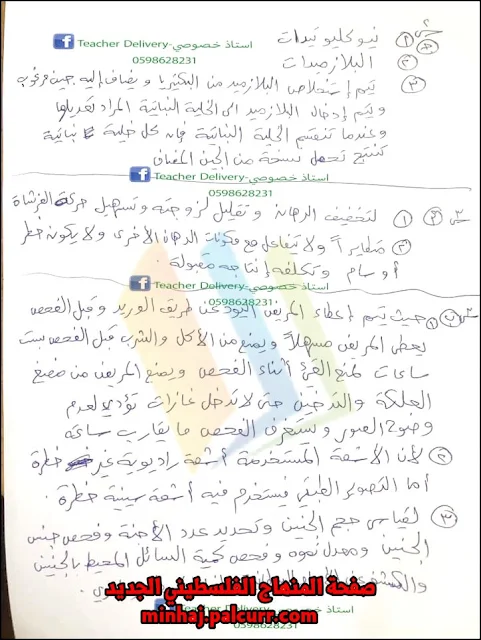 س٢
أ) ① نيوكليوتيدات
② البلازميدات
③ يتم إستخلاص البلازميد من البكتيريا و يضاف إليه جين مرغوب
ويتم إدخال البلازميد الى الخلية النباتية المراد تعديلها
وعندما تنقسم الخلية النباتية فإن كل خلية نباتية
تنتج تحمل نسخة من الجين المضاف
① لتخفيف الدهان و تقليل لزوجته و تسهيل حركة الفرشاة
② متطايراً ولا تتفاعل مع مكونات الدهان الأخرى ولا يكون خطر
أو سام وتكلفه إنتاجه مقبولة.
① حيث يتم إعطاء المريض اليود عن طريق الوريد و قبل الفحص
يعطى المريض مسهلاً و يمنع من الأكل والشرب قبل الفحص بست
ساعات لمنع القيئ أثناء الفحص ويمنع المريض من مضغ
العلكة والتدخين حتى لا تدخل غازات تؤدي لعدم
وضوح الصور و يستغرق الفحص ما يقارب ساعة
② لأن الأشعة المستخدمة أشعة راديوية غير خطرة
أما التصوير الطبقي فستخدم فيه أشعة سينية خطرة.
③ لقياس حجم الجنين و تحديد عدد الأجنة و فحص جنس
الجنين ومعدل نموه و فحص كمية السائل المحيط بالجنين
والكشف عن
Teacher Delivery-استاذ خصوصي
0598628231
Teacher Delivery-استاذ خصوصي
0598628231
Teacher Delivery-استاذ خصوصي
0598628231
صفحة المنهاج الفلسطيني الجديد
minhaj.palcurr.com
استاذ خصوصي
0598628231